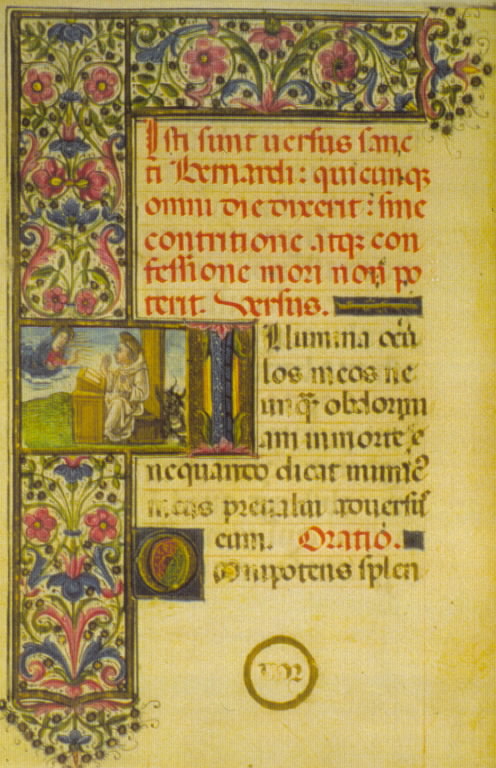 Isti sunt uersus sanc
ti Bernardi: quicunqꝫ
omni die dixerit: sine
contritione atqꝫ con
fessione mori non po
terit. Versus.
Illumina ocu
los meos ne
unq̄ obdormi
am in morte
nequando dicat inimicꝰ
meus preualui aduersus
eum. Oratio.
Omnipotens splen